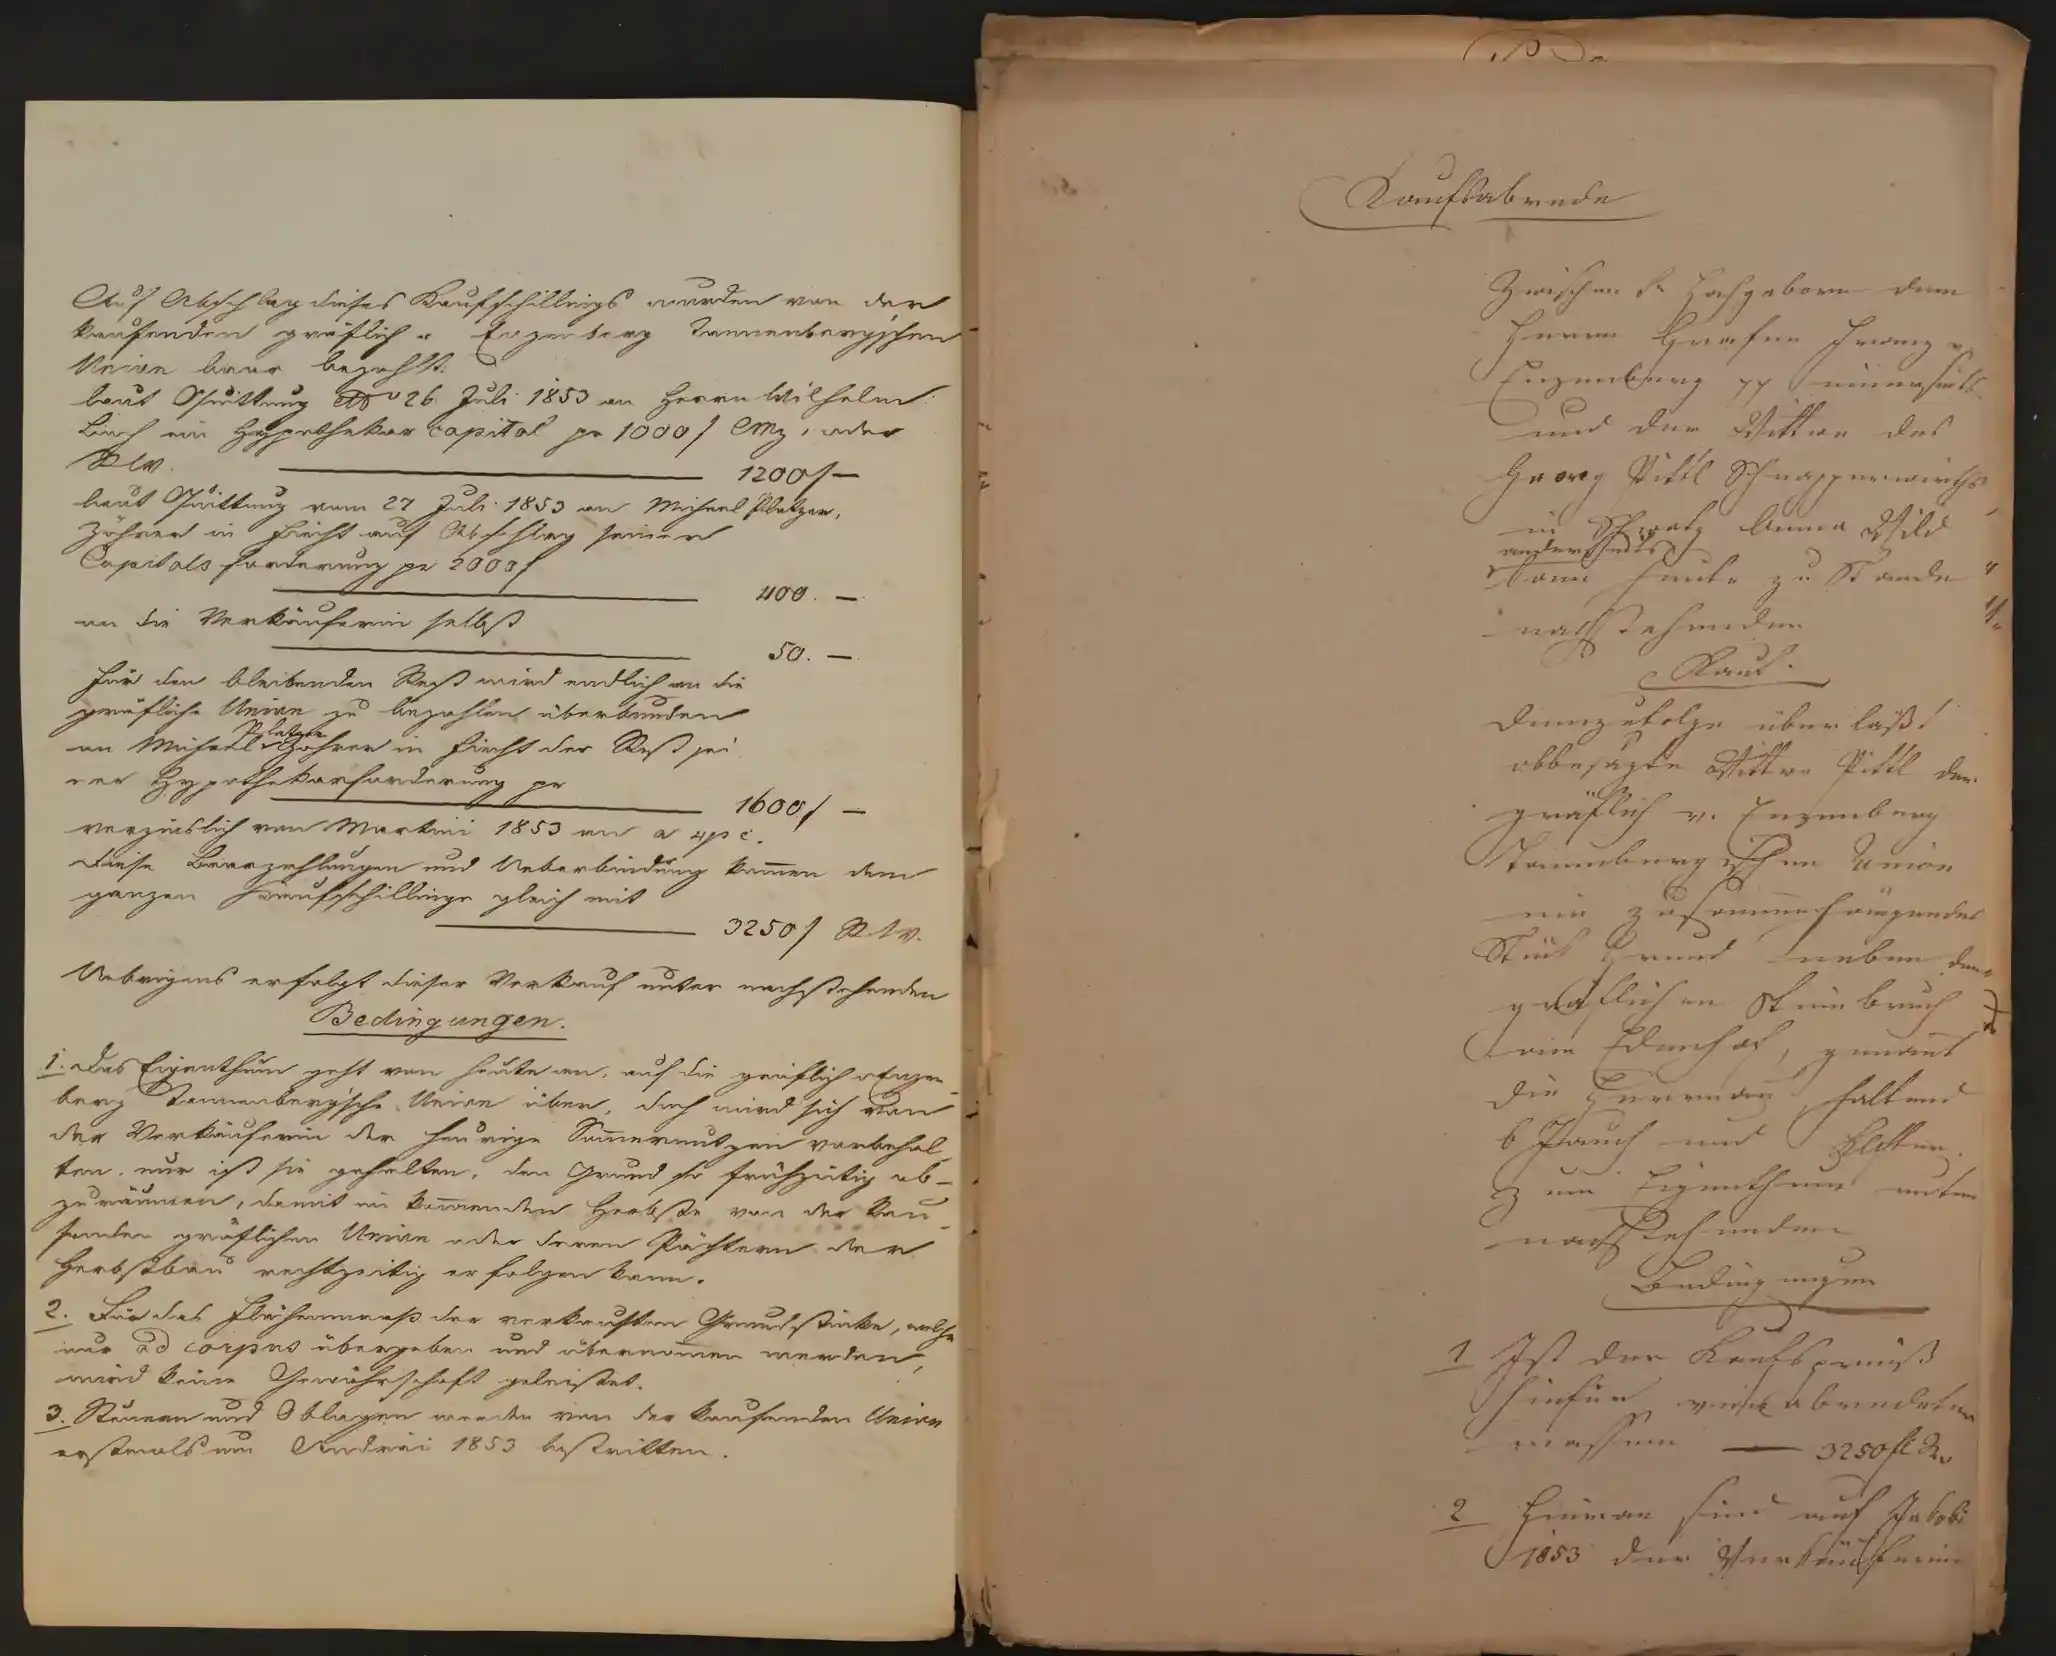 Auf Abschlag dieses Kaufschillings wurden von der
kaufenden gräflich v Enzenberg Tannenberg'schen
Union baar bezahlt:
laut Quittung ddo 26 Juli 1853 an Herrn Wilhelm
ein Hypothekar Capital pr 1000 f CMz, oder
RW. 1200 f —
laut Quittung vom 27 Juli 1853 an Michael Platzer,
Zöhrer in Fiecht auf Abschlag seiner
Capitalsforderung pr 2000 f
400. —
an die Verkäuferin selbst
50. —
Für den bleibenden Rest wird endlich an die
gräfliche Union zu bezahlen überbunden
Platzer
an Michael Zöhrer in Fiecht der Rest sei
ner Hypothekarforderung pr
1600 f —
verzinslich von Martini 1853 an a 4 p c.
diese Baarzahlungen und Ueberbindung kom̄en dem
ganzen Kaufschillinge gleich mit
3250 f RW.
Uebrigens erfolgt dieser Verkauf unter nachstehenden
Bedingungen.
1. Das Eigenthum geht von heute an, auf die gräflich v Enzen-
berg Tannenberg'sche Union über, doch wird sich von
der Verkäuferin der heurige Som̄ernutzen vorbehal-
ten, nur ist sie gehalten, den Grund so frühzeitig ab-
zuräumen, damit im kom̄enden Herbste von der kau-
fenden gräflichen Union oder deren Pächtern der
Herbstbau rechtzeitig erfolgen kann.
2. Für das Flächenmaß der verkauften Grundstücke, welche
nur ad corpus übergeben und übernom̄en werden,
wird keine Gewährschaft geleistet.
3. Steuern und Oblagen werden von der kaufenden Union
erstmals um Andräi 1853 bestritten.
Kaufsabrede
Zwischen Sr Hochgeborn dem
Herrn Grafen Franz v
Enzenberg pp einerseits
und der Wittwe des
Georg Pittl Schnapperwirths
in Schwatz Anna Wild
anderseits
kam heute zu Stande
nachstehender
Kauf.
Demzufolge überläßt
obbesagte Wittwe Pittl der
gräflich v. Enzenberg
Tannenbergischen Union
ein zusam̄enhängendes
Stück Grund neben dem
gräflichen Steinbruch
am Edenhof, genannt
die, haltend
6 Jauch und Klafter
zum Eigenthum unter
nachstehenden
Bedingungen
1 Ist der Kaufspreiß
hiefür verabredeter
massen — 3250 fl R.
2 Hievon sind auf Jakobi
1853 der Verkäuferin